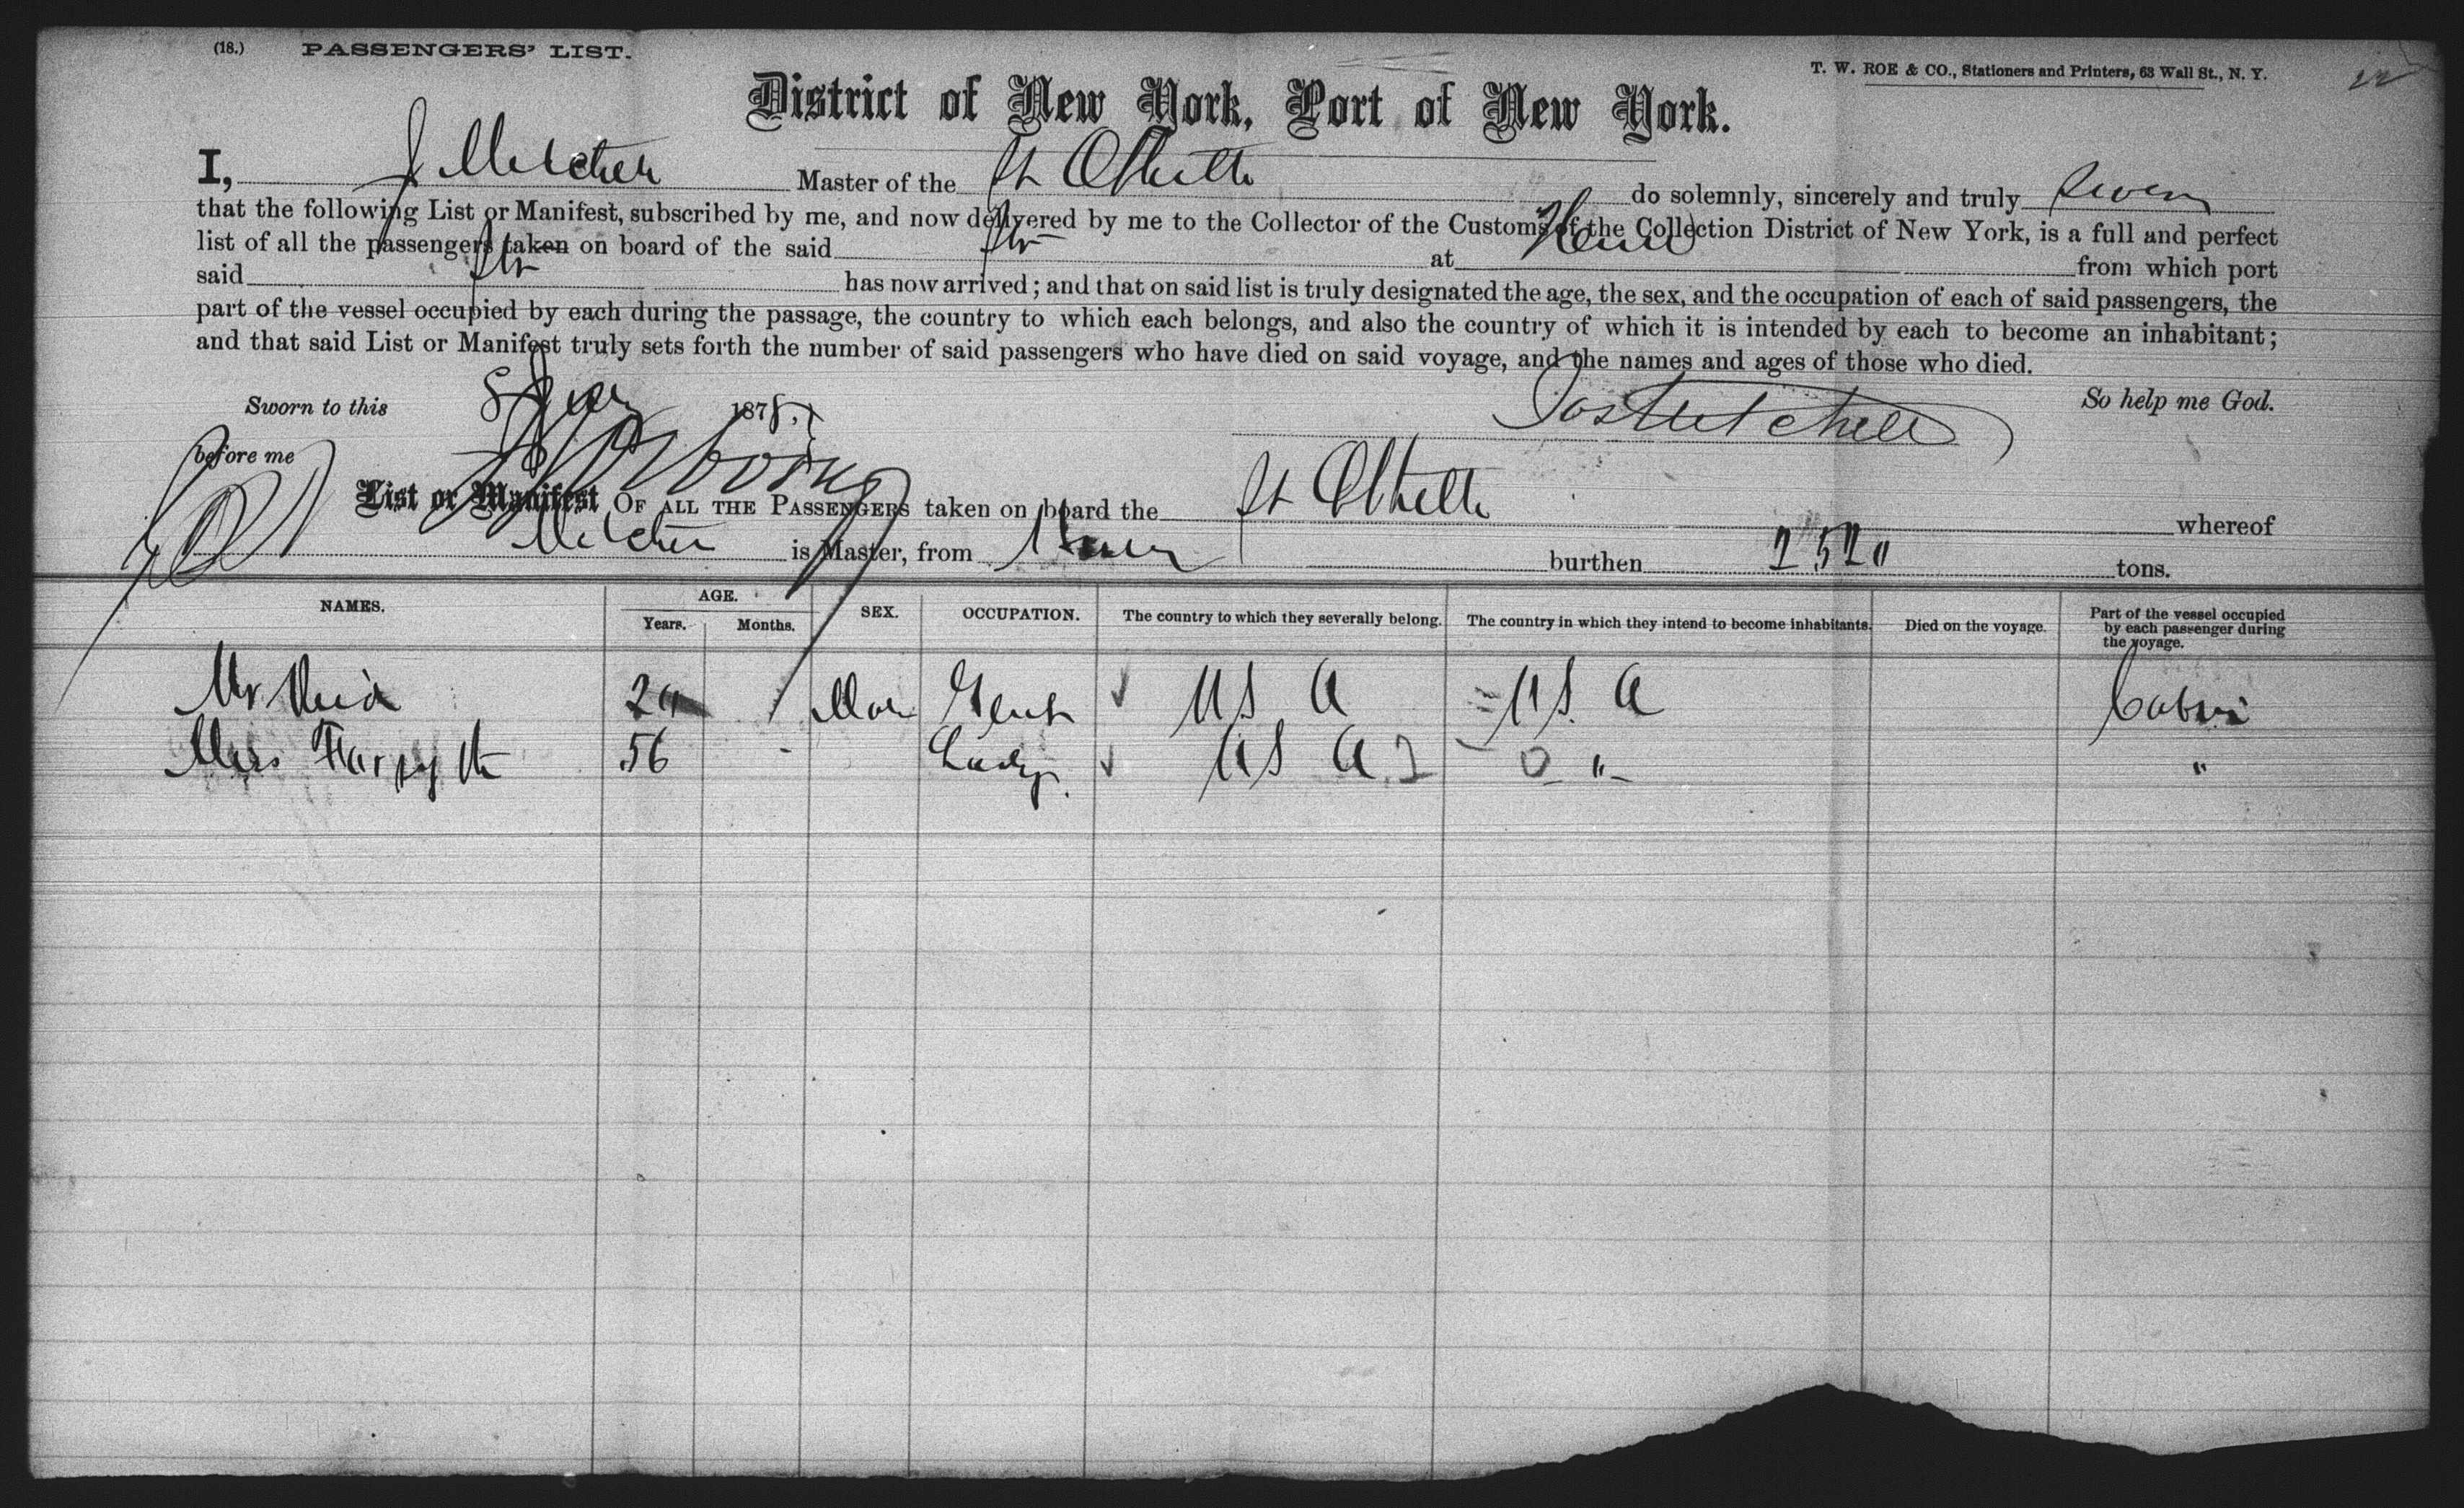 (18.) PASSENGERS' LIST.
T. W. ROE & CO., Stationers and Printers, 63 Wall St., N. Y.
22
District of New York, Port of New York.
I, J Mitchell Master of the St Othello do solemnly, sincerely and truly swear
that the following List or Manifest, subscribed by me, and now delivered by me to the Collector of the Customs of the Collection District of New York, is a full and perfect
list of all the passengers taken on board of the said Str at from which port
said Str has now arrived; and that on said list is truly designated the age, the sex, and the occupation of each of said passengers, the
part of the vessel occupied by each during the passage, the country to which each belongs, and also the country of which it is intended by each to become an inhabitant;
and that said List or Manifest truly sets forth the number of said passengers who have died on said voyage, and the names and ages of those who died.
Sworn to this 8 1878, Jos Mitchell So help me God.
before me
List or Manifest OF ALL THE PASSENGERS taken on board the St Othello whereof
Mitchell is Master, from burthen 2520 tons.
NAMES. AGE. Years. Months. SEX. OCCUPATION. The country to which they severally belong. The country in which they intend to become inhabitants. Died on the voyage. Part of the vessel occupied by each passenger during the voyage.
Mr Reid Gent U S A U S A Cabin
Miss Forsyth 56 - Lady. U S A "